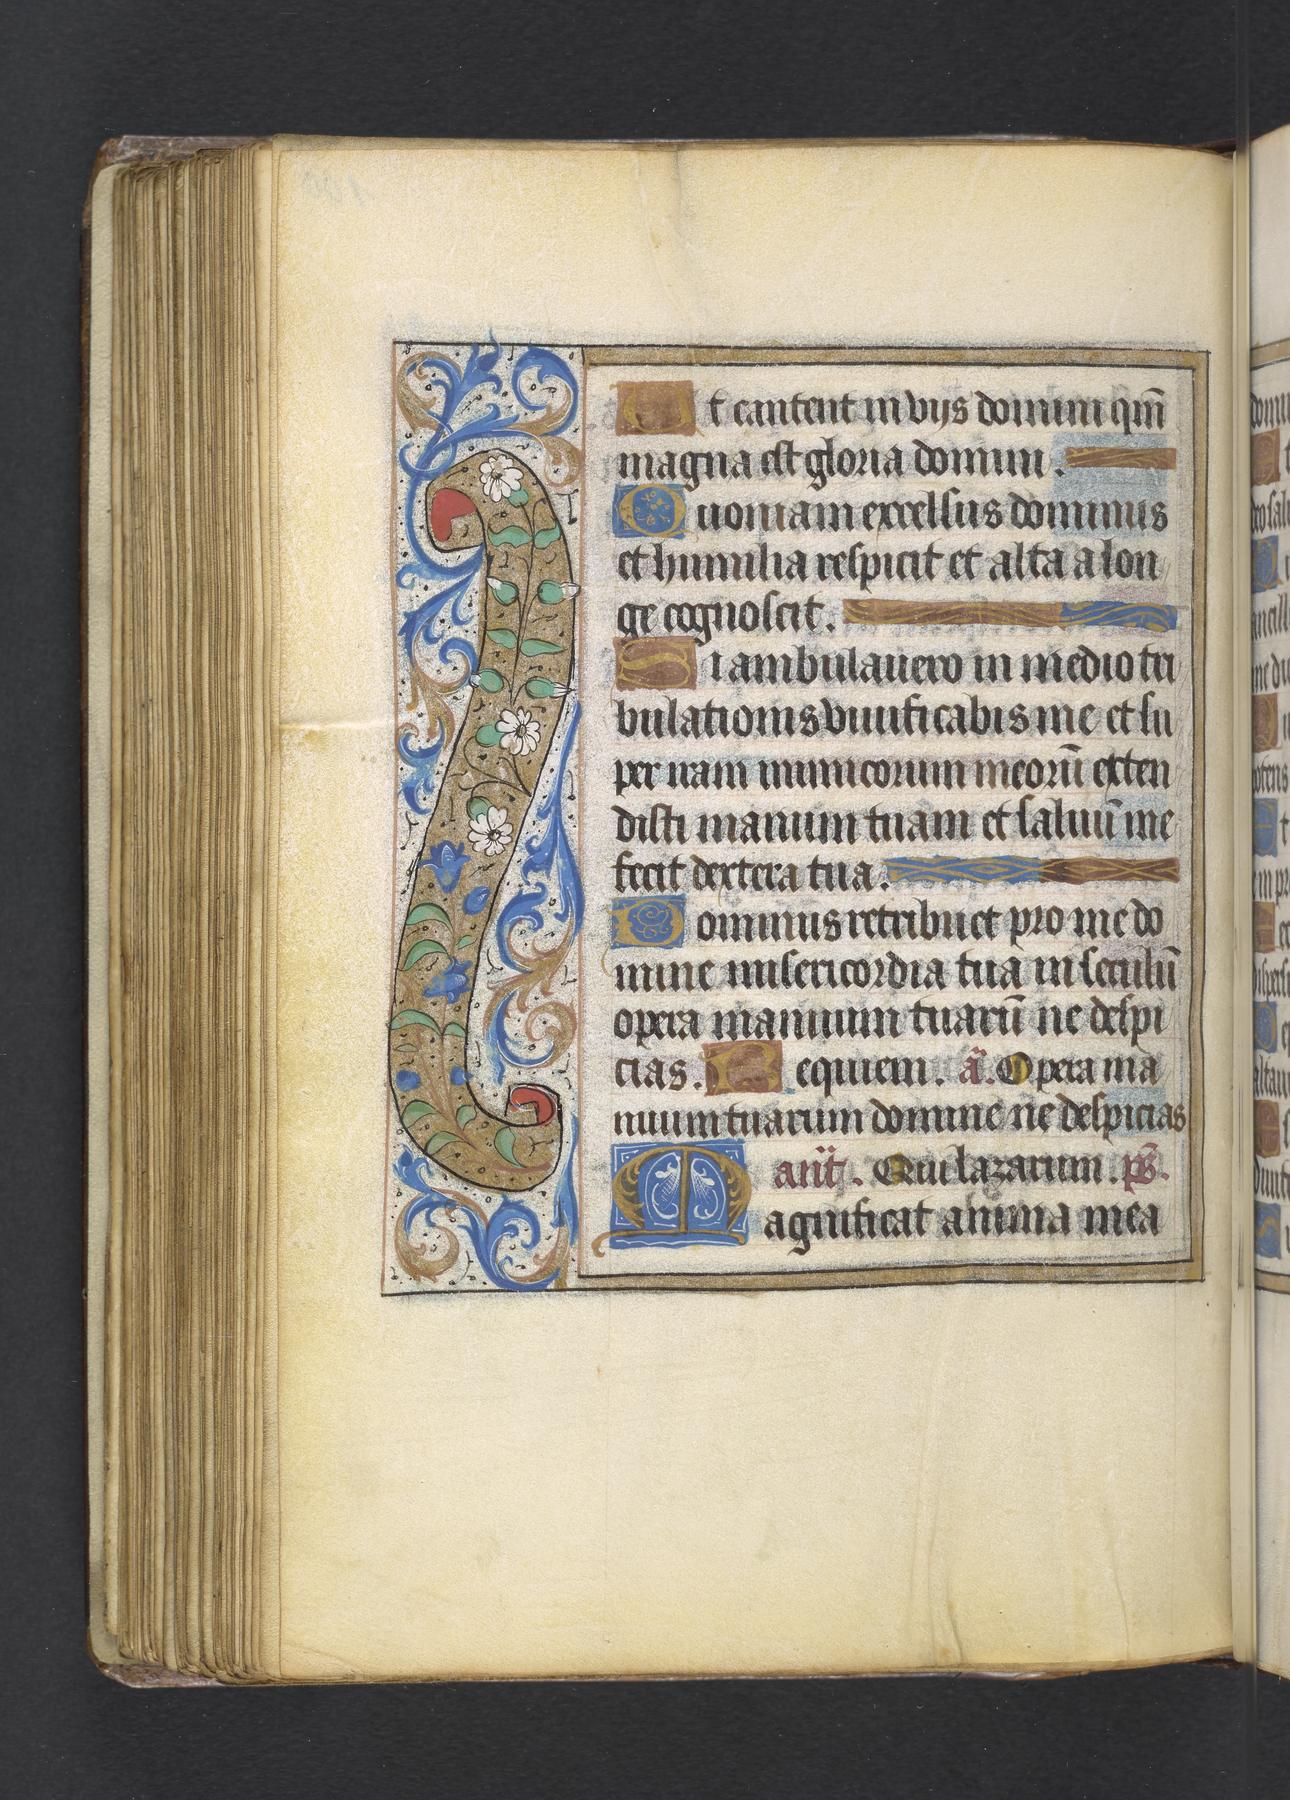 Et cantent in vijs domini qm̄
magna est gloria domini.
Quoniam excelsus dominus
et humilia respicit et alta a lon
ge cognoscit.
Si ambulauero in medio tri
bulationis viuificabis me et su
per iram inimicorum meorū exten
disti manum tuam et saluū me
fecit dextera tua.
Dominus retribuet pro me do
mine misericordia tua in seculū
opera manuum tuarū ne despi
cias. Requiem. a. Opera ma
nuum tuarum domine ne despicias
ant. Qui lazarum. ps.
Magnificat anima mea